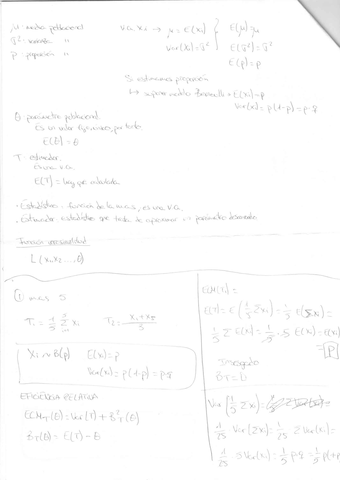 μ = media poblacional
σ² = varianza "
P = proporción "
v.a. xi → μ = E(xi)
Var(xi) = σ²
E(μ) = μ
E(σ²) = σ²
E(p) = p
Si estimamos proporción
↳ supone modelo Bernoulli → E(xi) = p
Var(xi) = p(1-p) = p·q
θ = parámetro poblacional
Es un valor fijo, por tanto
E(θ) = θ
T = estimador
es una v.a.
E(T) = hay que calcularla
• Estadístico = función de la m.a.s, es una v.a.
• Estimador = estadístico que trata de aproximar un parámetro
Función verosimilitud
L(x1, x2, ..., θ)
① m.a.s 5
T1 = 1/5 Σ xi
T2 = x1+x5 / 5
xi ~ B(p) E(xi) = p
Var(xi) = p(1-p) = p·q
EFICIENCIA RELATIVA
ECM_T(θ) = Var(T) + B²_T(θ)
B_T(θ) = E(T) - θ
ECM(T1) =
E(T) = E(1/5 Σxi) = 1/5 E(Σxi) =
1/5 Σ E(xi) = 1/5 · 5 E(xi) = E(xi)
= p
Insesgado
B_T = 0
Var(1/5 Σxi) =
1/25 · Var(Σxi) = 1/25 Σ Var(xi) =
1/25 · 5 Var(xi) = 1/5 p·q = 1/5 p(1-p)